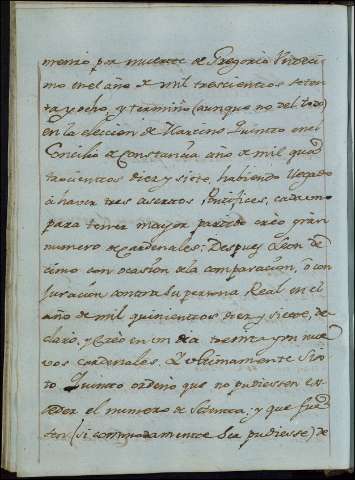 menzo por muerte de Gregorio Undeci
mo en el año de mil trescientos seten
ta y ocho, y termino (aunque no del todo)
en la eleccion de Martino Quinto en el
Concilio de Constancia año de mil qua
trocientos diez y siete, habiendo llegado
à haver tres asertos Pontifices, cada uno
para tener mayor partido creò gran
numero de Cardenales: Despues Leon de
cimo con ocasion de la comparacion, ò con
juracion contra su persona Real en el
año de mil quinientos diez y siete, de
claró, y Creò en un dia treinta y un nue
vos cardenales. Y ultimamente Six
to Quinto ordenò que no pudiessen ex
ceder el numero de Setenta; y que fues
sen (si commodamente ser pudiesse) de